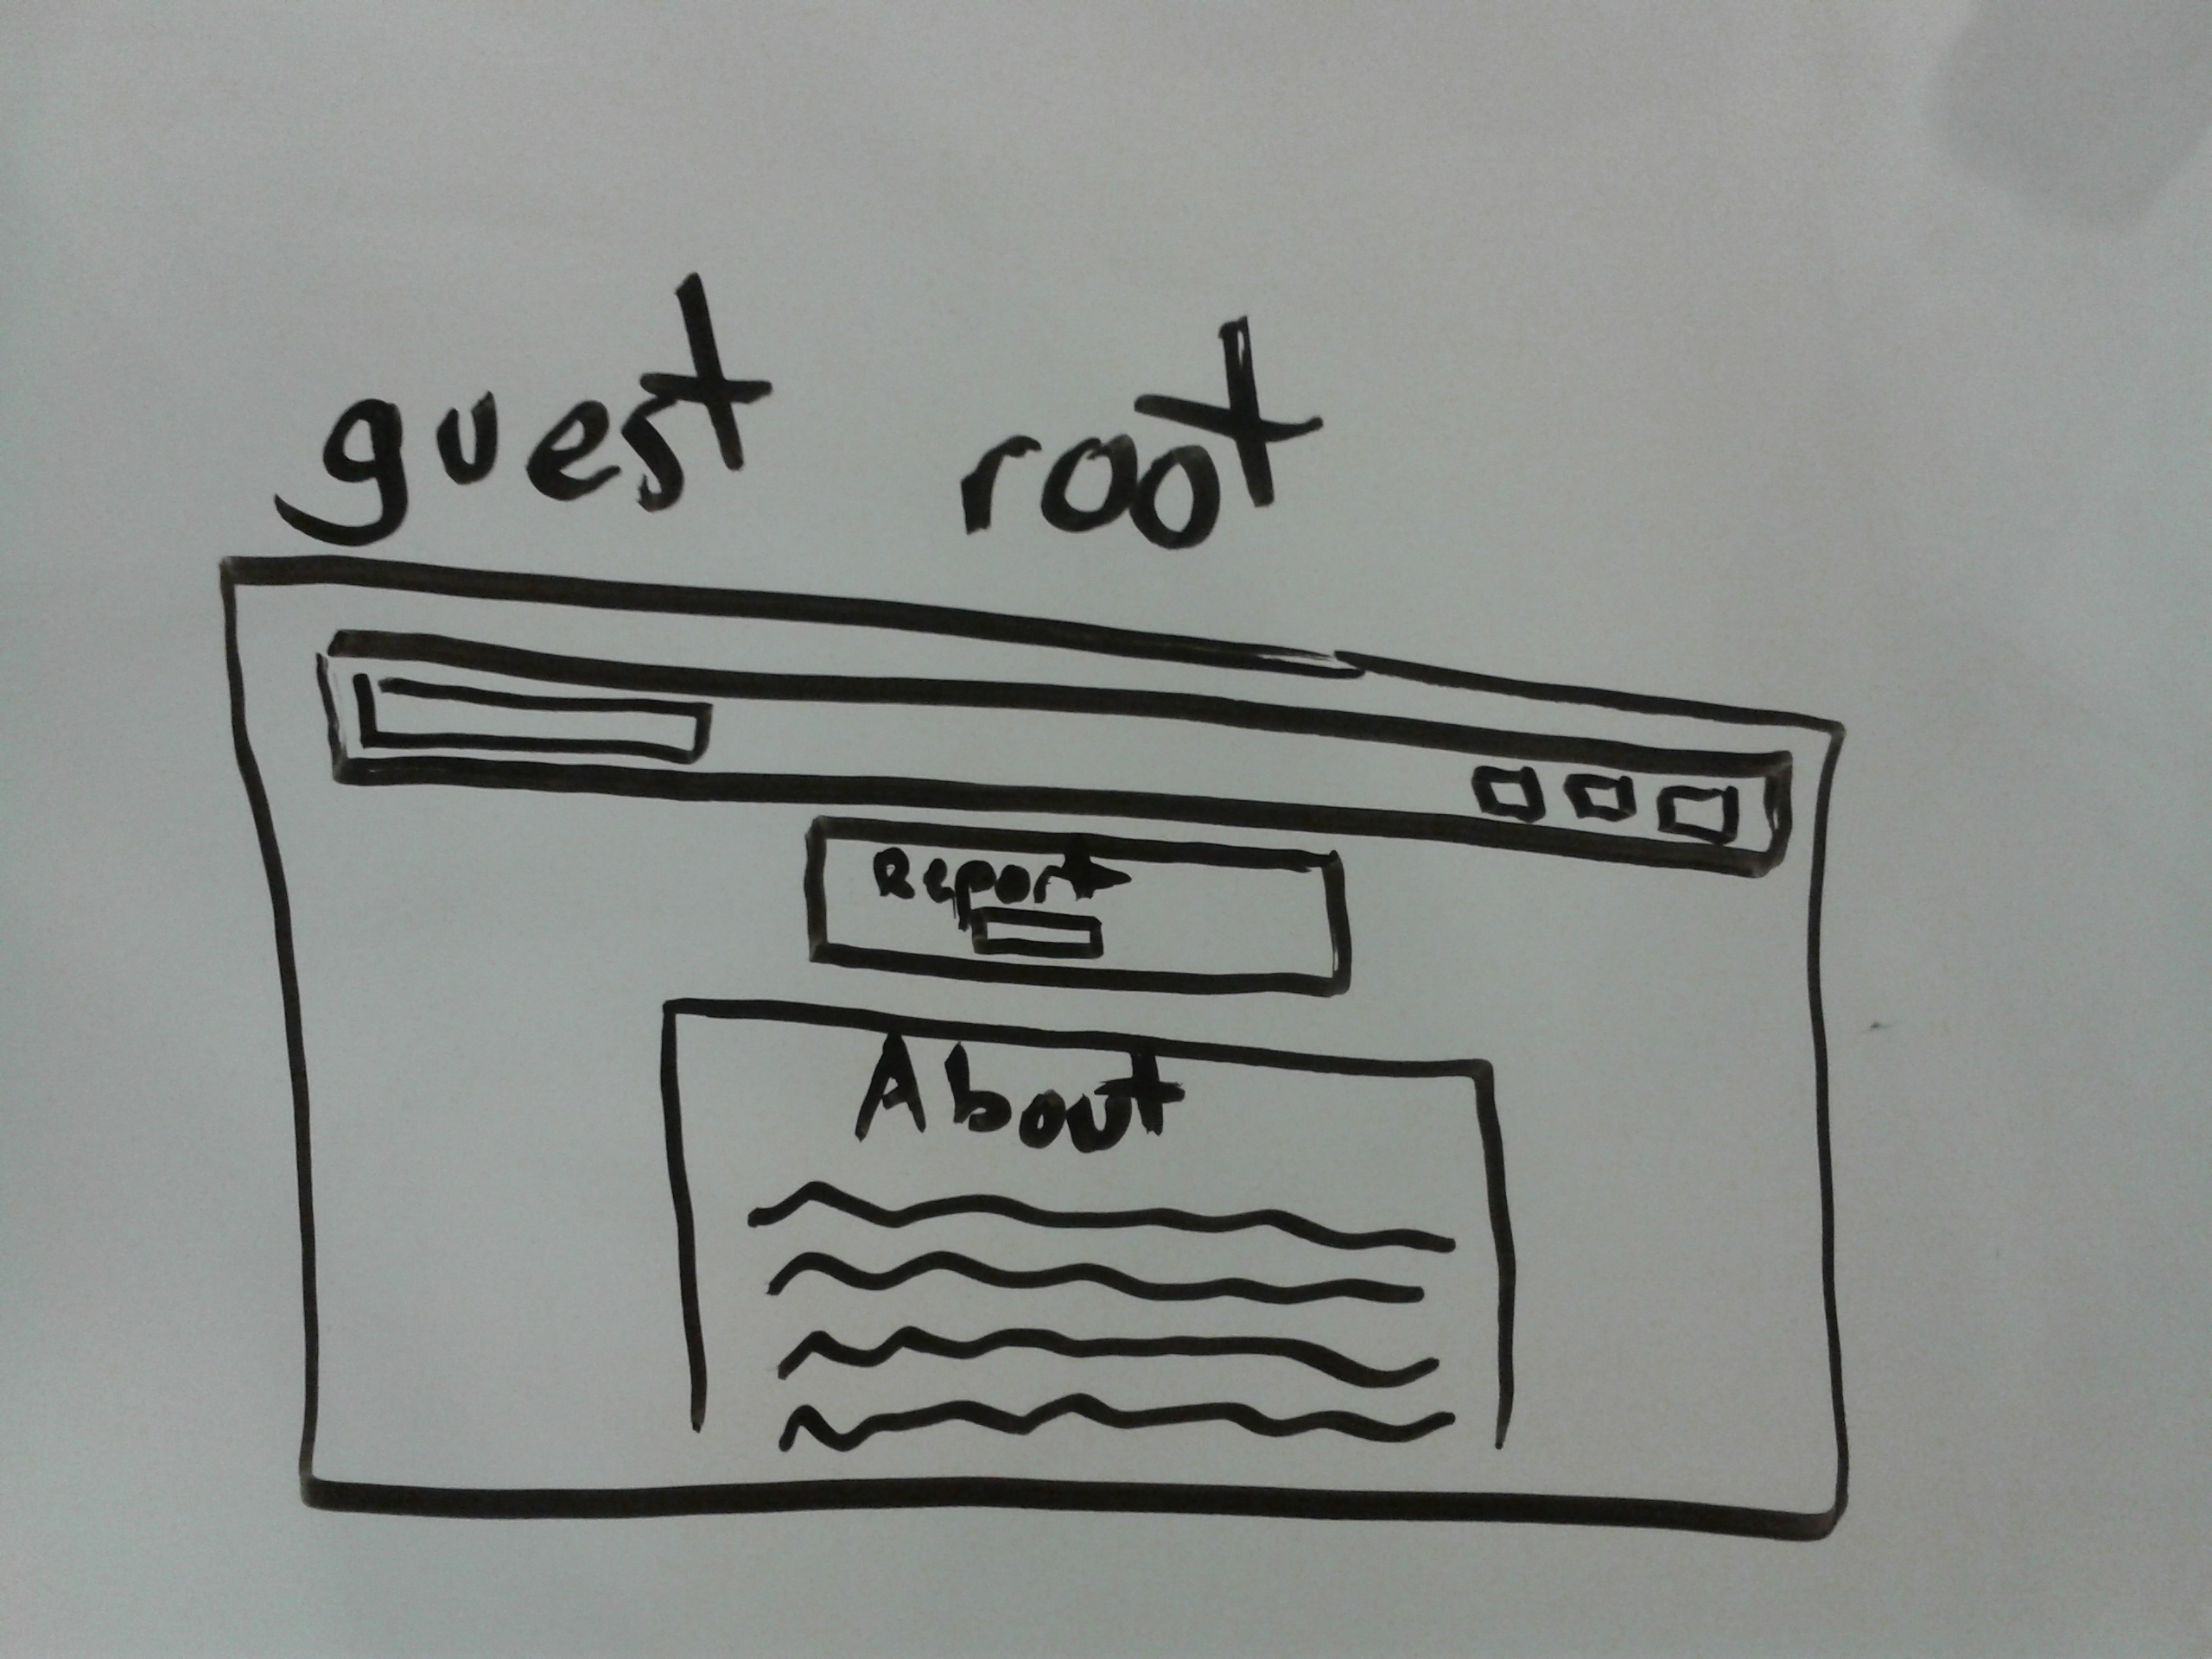 guest root
Report
About